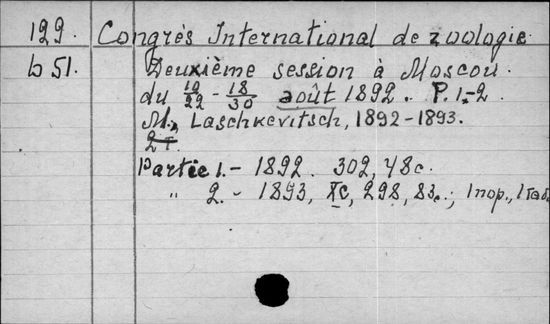 199. Congrès International de zoologie.
b 51. Deuxième session à Moscou.
du 10/22 - 18/30 août 1892. P. 1-2
M., Laschkevitsch, 1892-1893.
2 т.
Partie 1. - 1892. 302, 48 c.
" 2. - 1893, XC, 298, 83 c.; 1 пор., 1 таб.